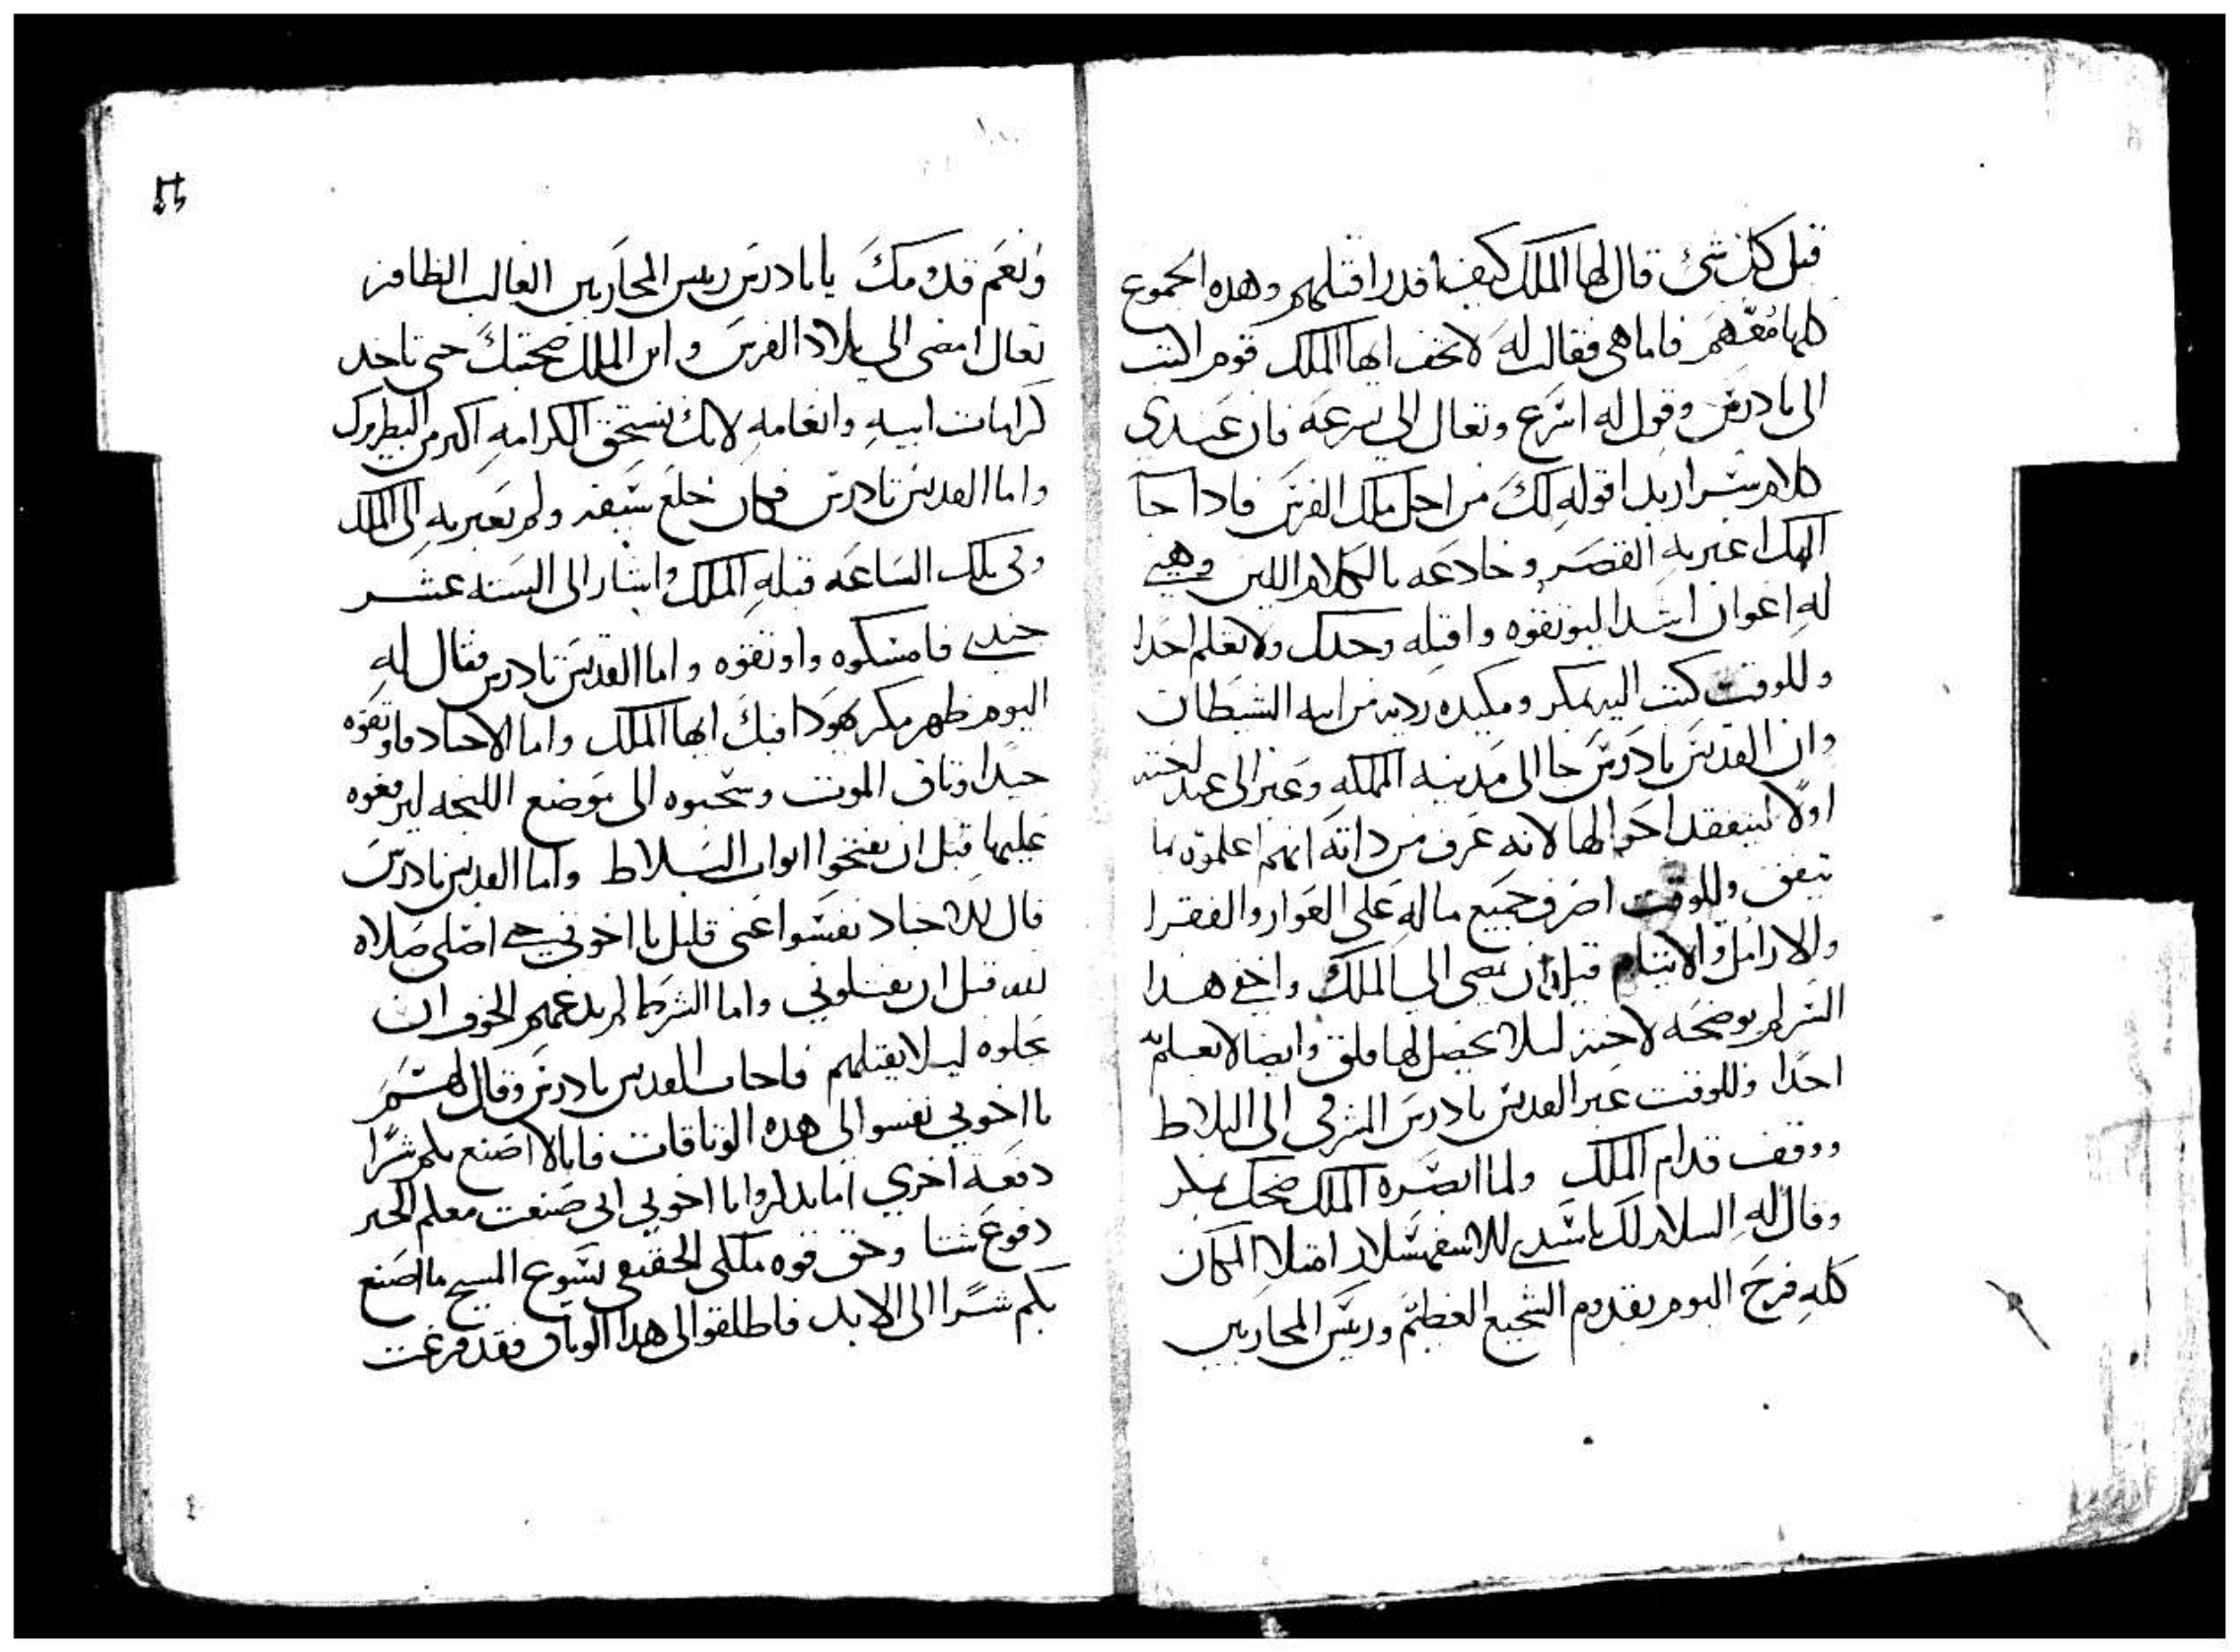 قبل كل شى قال لها الملك كيف اقدر اقتلهم وهده الجموع
كلها معهم فاما هى فقالت له لا تخف ايها الملك قوم اكتب
الى تادرس وقول له اسرع وتعال الى بسرعه فان عندي
كلام سر اريد اقوله لك من اجل ملك الفرس فادا جا
اليك اعبر به القصر وخادعه بالكلام اللين وهيي
له اعوان اشدا ليوتقوه واقتله وحدك ولا تعلم احدا
وللوقت كتب اليه بمكر ومكيده رديه من ابيه الشيطان
وان القديس تادرس جا الى مدينه المملكه وعبر الى عند اخته
اولا ليتفقد احوالها لانه عرف من داته انهم اعلموه بما
يتفق وللوقت اصرف جميع ماله على العواز والفقرا
والارامل والايتام قبل ان يمضى الى الملك واخفى هدا
السر لم يوضحه لاخته ليلا يحصل لها قلق وايضا لا يعلم به
احدا وللوقت عبر القديس تادرس المشرقى الى البلاط
ووقف قدام الملك ولما ابصره الملك ضحك بمكر
وقال له السلام لك يا سيدي الاسفهسلار امتلا المكان
كله فرح اليوم بقدوم الشجيع العظيم وريس المحاربين
ونعم قدومك يا تادرس ريس المحاربين الغالب الظافر
تعال امضى الى بلاد الفرس وابن الملك صحبتك حتى تاخد
كرامات ابيه وانعامه لانك تستحق الكرامه اكتر من البطريرك
واما القديس تادرس فكان خلع سيفه ولم يعبر به الى الملك
وفى تلك الساعه قبله الملك واشار الى السته عشر
جندي فامسكوه واوتقوه واما القديس تادرس فقال له
اليوم ظهر مكر يهودا فيك ايها الملك واما الاجناد فاوتقوه
جيدا وتاق الموت وسحبوه الى موضع اللبخه ليرفعوه
عليها قبل ان يفتحوا ابواب البلاط واما القديس تادرس
قال للاجناد نفسوا عنى قليل يا اخوتي حتى اصلى صلاه
لله قبل ان تقتلونى واما الشرط لم يدعهم الخوف ان
يحلوه ليلا يقتلهم فاجاب القديس تادرس وقال لهم
يا اخوتى نفسوا لى هده الوتاقات فانا لا اصنع بكم شرا
دفعه اخري اما تدكروا يا اخوتى انى صنعت معكم الخير
دفوع شتا وحق قوه ملكى الحقيقى يسوع المسيح ما اصنع
بكم شرا الى الابد فاطلقوا لى هدا الوتاق فقد فرغت